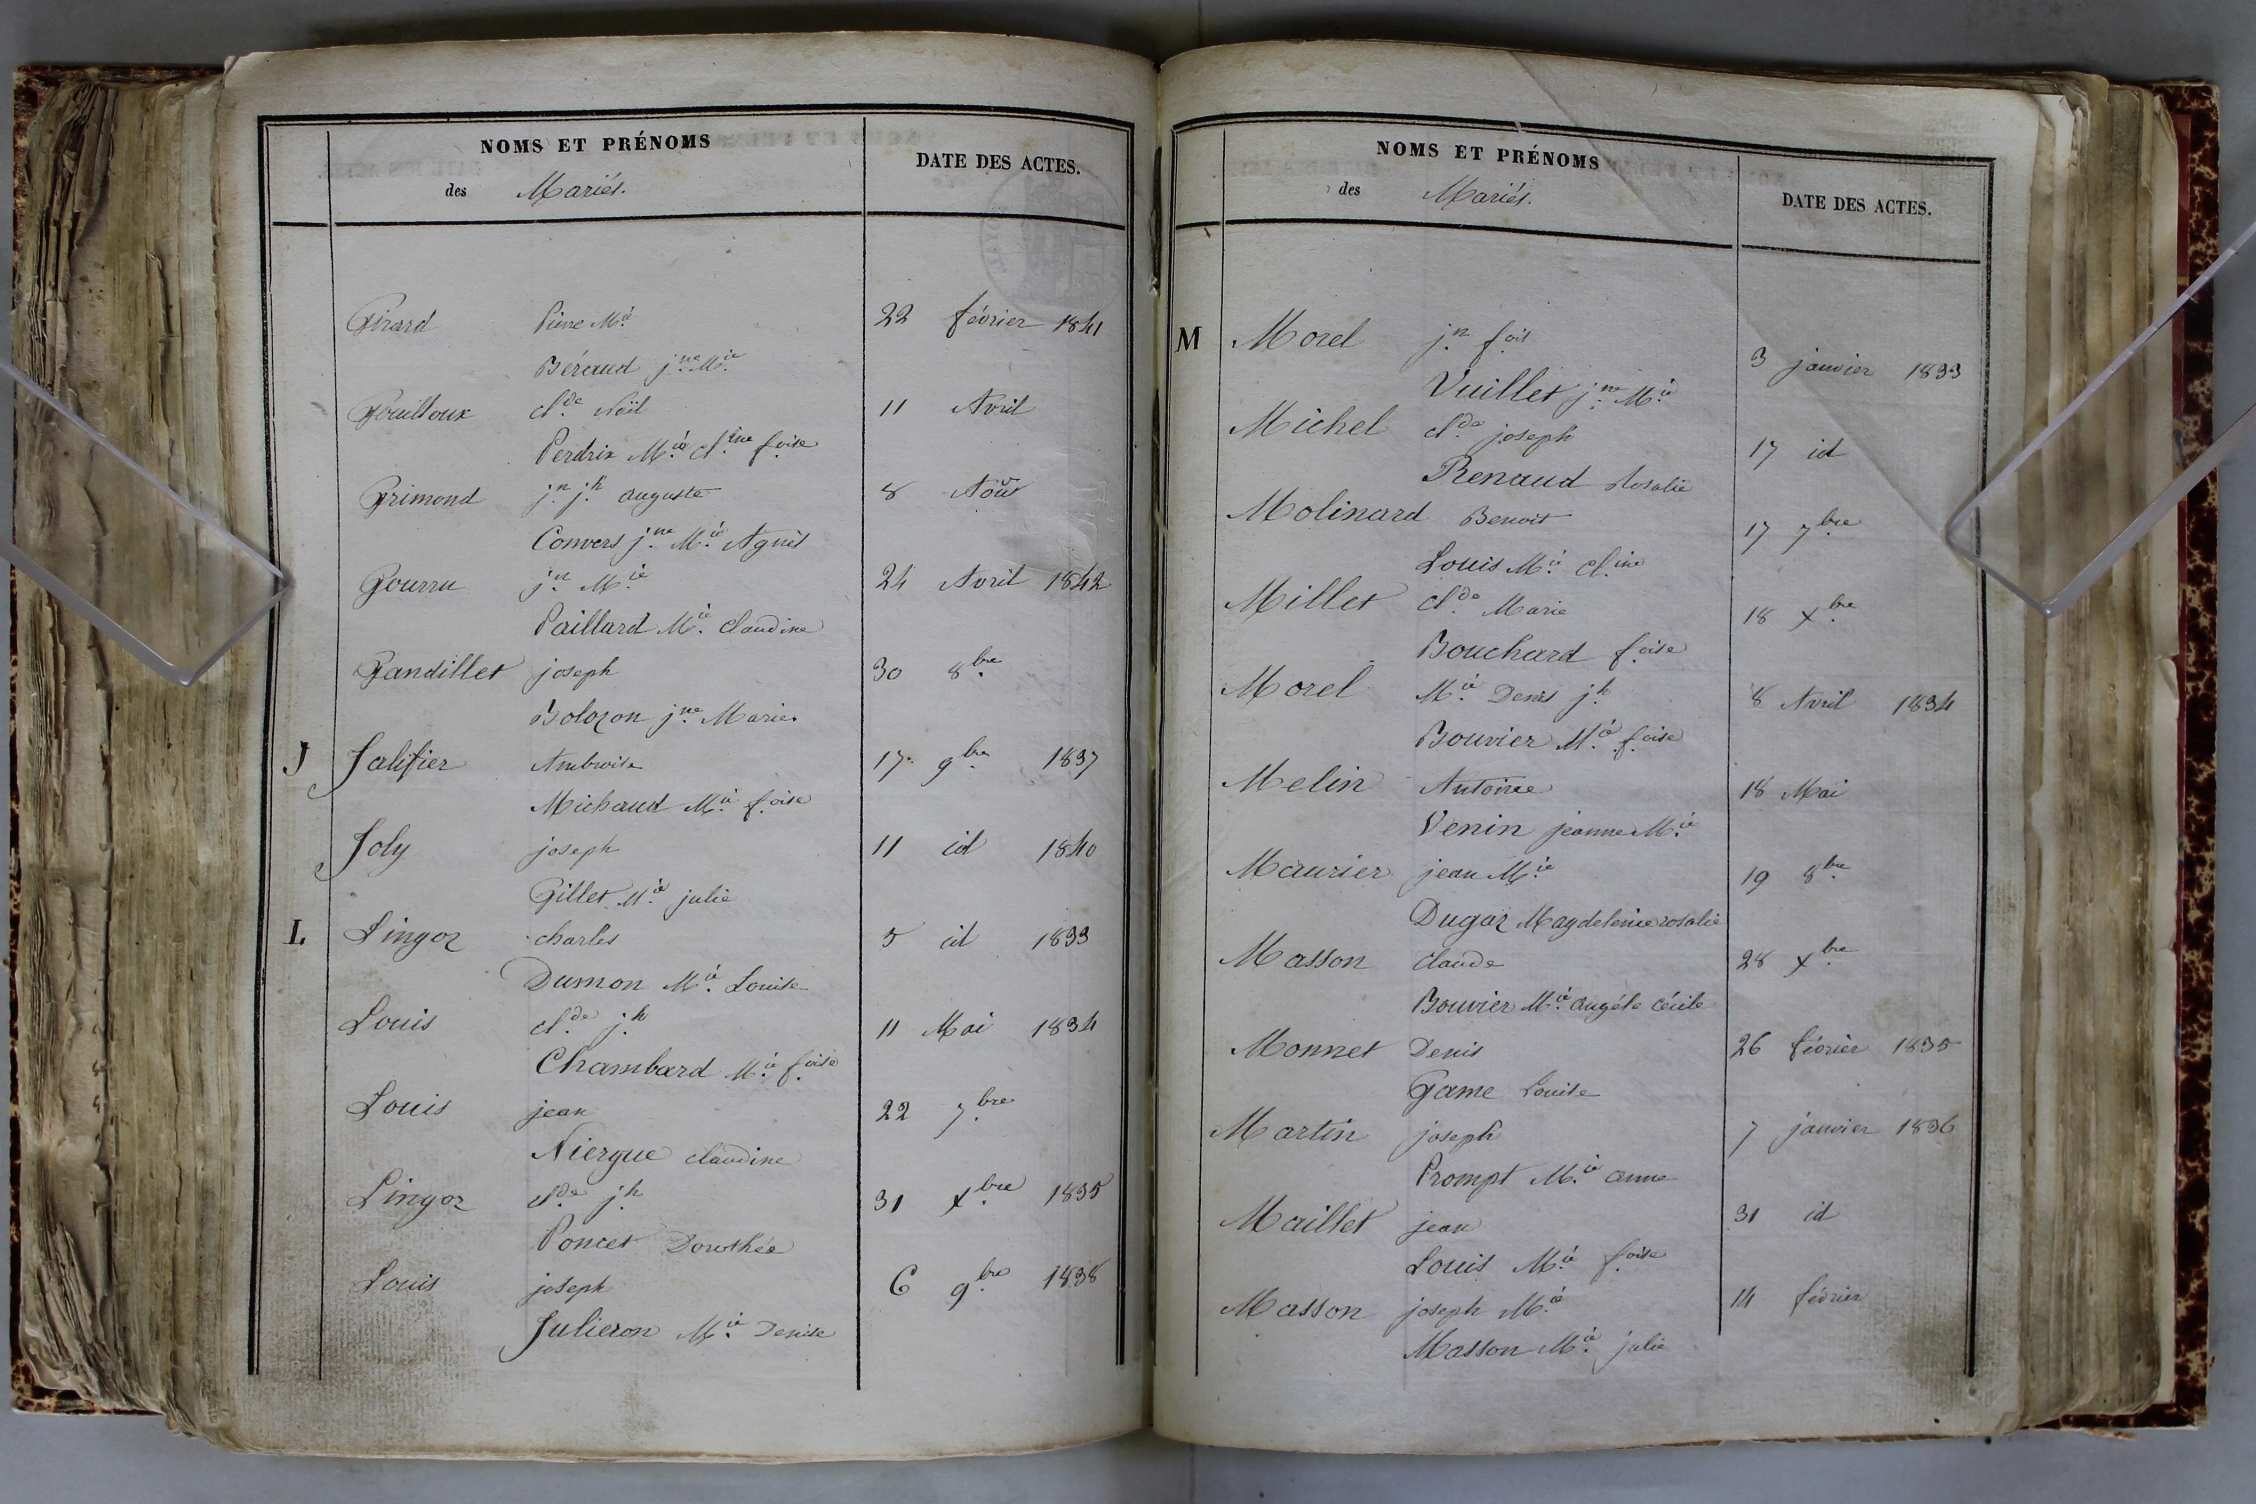 NOMS ET PRÉNOMS
des Mariés.
DATE DES ACTES.
Girard Pierre M.ie 22 février 1841
Béraud j.ne M.ie
Gouilloux cl.de Noël 11 Avril
Perdrix M.ie cl.ine f.oise
Grimond j.n j.h auguste 8 Août
Convers j.ne M.ie Agnès
Gourru j.n M.ie 24 Avril 1842
Paillard M.ie claudine
Gandillet joseph 30 8.bre
Bolozon j.ne Marie.
J Jalifier Ambroise 17 9.bre 1837
Michaud M.ie f.oise
Joly joseph 11 id 1840
Gillet M.ie julie
L Lingoz charles 5 id 1833
Dumon M.ie Louise
Louis cl.de j.h 11 Mai 1834
Chambard M.ie f.oise
Louis jean 22 7.bre
Niergue claudine
Lingoz cl.de j.h 31 x.bre 1835
Poncet Dorothée
Louis joseph 6 9.bre 1838
Julieron M.ie Denise
NOMS ET PRÉNOMS
des Mariés.
DATE DES ACTES.
M Morel j.n f.ois 3 janvier 1833
Vuillet j.ne M.ie
Michel cl.de joseph 17 id
Renaud Rosalie
Molinard Benoit 17 7.bre
Louis M.ie cl.ine
Millet cl.de Marie 18 x.bre
Bouchard f.oise
Morel M.ie Denis j.h 8 Avril 1834
Bouvier M.ie f.oise
Melin Antoine 18 Mai
Venin jeanne M.ie
Maurier jean M.ie 19 8.bre
Dugaz Magdeleine rosalie
Masson claude 28 x.bre
Bouvier M.ie angèle cécile
Monnet Denis 26 février 1835
Game Louise
Martin joseph 7 janvier 1836
Prompt M.ie anne
Maillet jean 31 id
Louis M.ie f.oise
Masson joseph M.ie 14 février
Masson M.ie julie